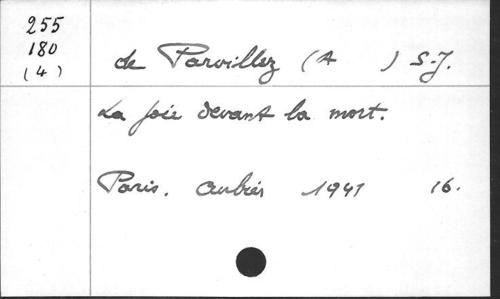 255
180
(4)
de Parvillez (A ) S.J.
La joie devant la mort.
Paris. Aubier 1941 16.